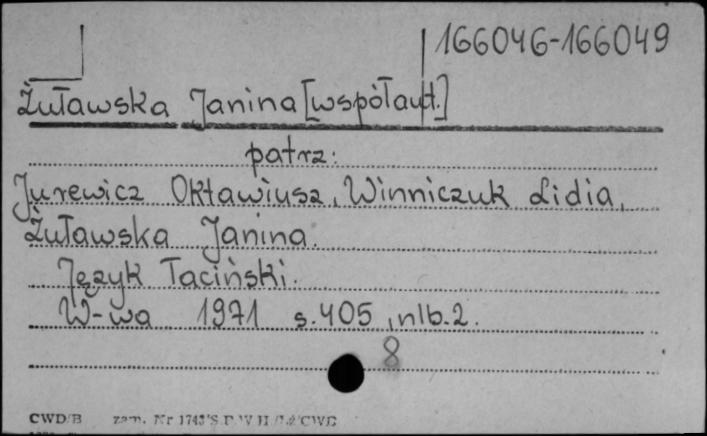 166046-166049
Żuławska Janina [współaut.]
patrz:
Jurewicz Oktawiusz, Winniczuk Lidia,
Żuławska Janina.
Język łaciński.
W-wa 1971 s. 405, nlb. 2.
8
CWD/B zam. Nr 1743